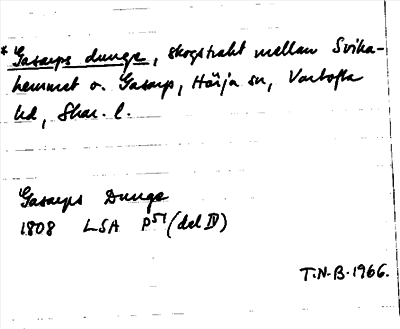 * Gasarps dunge, skogstrakt mellan Svika-
hemmet o. Gasarp, Härja sn, Vartofta
hd, Skar. l.
Gasarps Dunge
1808 LSA P51 (del IV)
T.N.B. 1966.